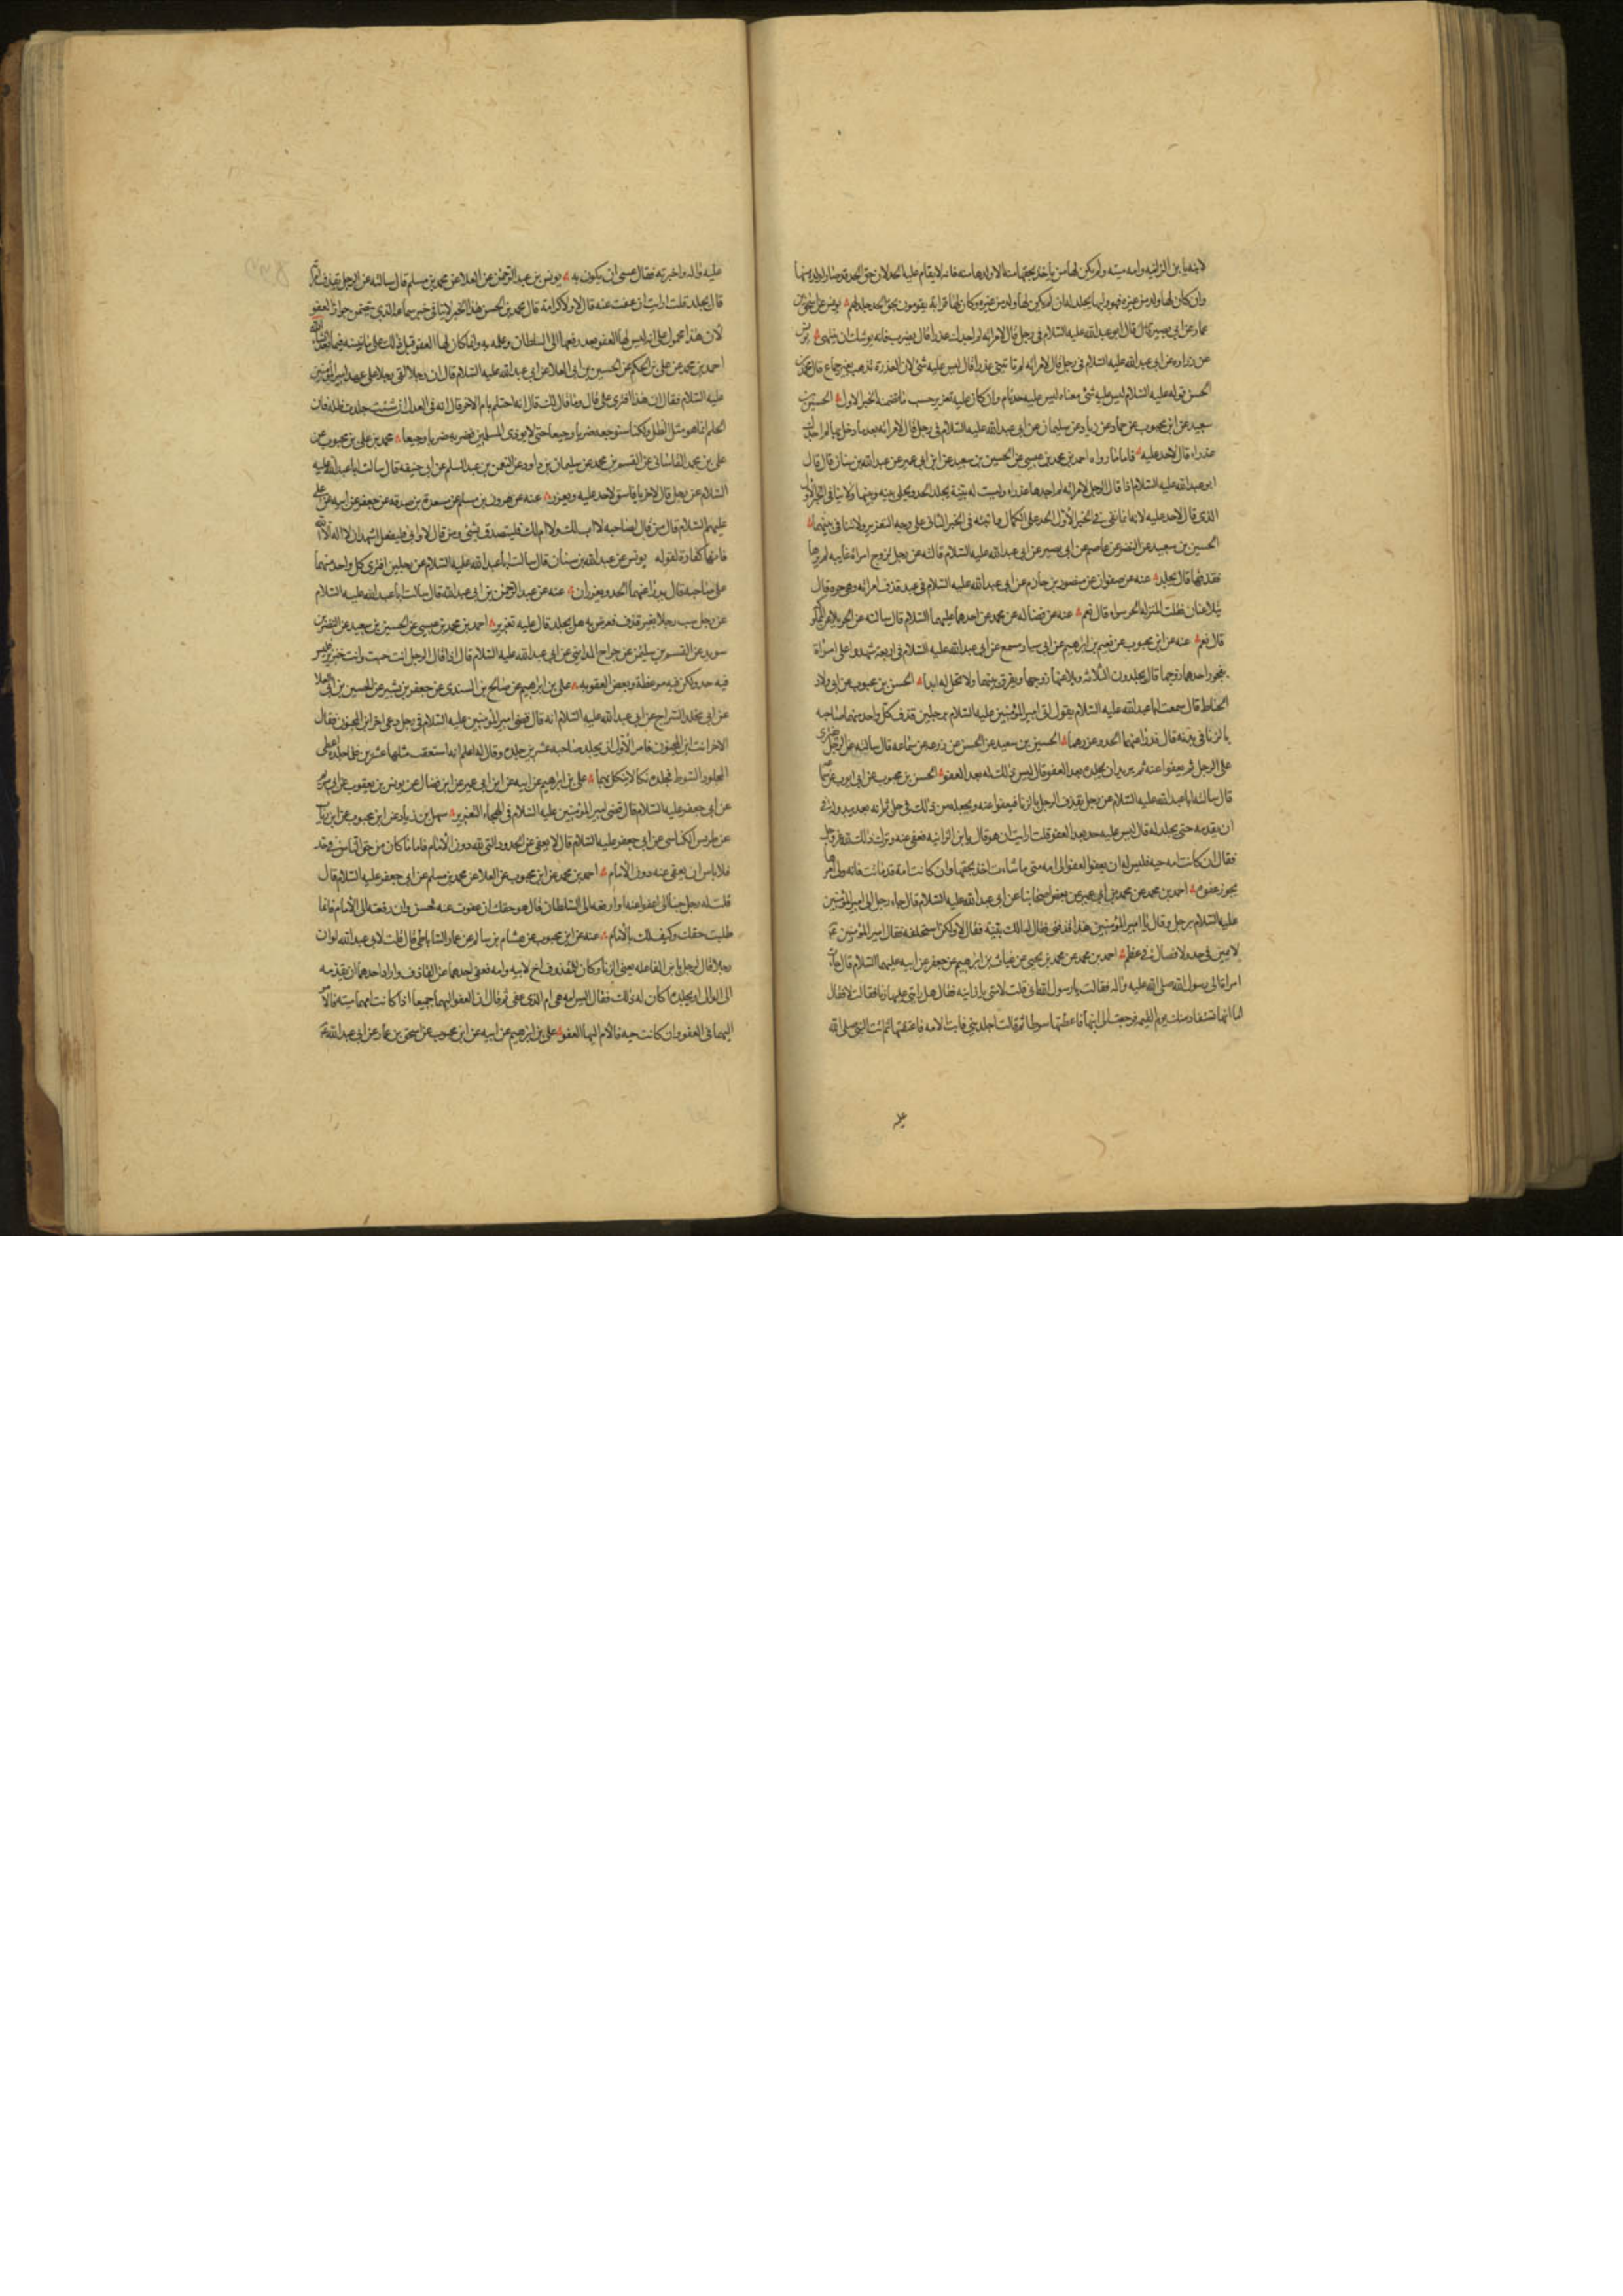 لابنه يا بن الزانية وامه ميتة ولم يكن لها من ياخذ بحقها منه الا ولدها منه فانه لا يقام عليه الحد لان حق الحد قد صار لولده منها
وان كان لها ولد من غيره فهو وليها يجلد له فان لم يكن لها ولد من غيره وكان لها قرابة يقومون بحق الحد جلد لهم يونس عن اسحق بن
عمار عن ابي بصير قال قال ابو عبد الله عليه السلام في رجل قال لامرائه لم اجدك عذرا قال يضرب فانه يوشك ان ينتهي يونس
عن زراره عن ابي عبد الله عليه السلام في رجل قال لامرائه لم تاتيني عذرا قال ليس عليه شئ لان العذرة تذهب بغير جماع قال محمد بن
الحسن قوله عليه السلام ليس عليه شئ معناه ليس عليه حد تام وان كان عليه تعزير حسب ما تضمنه الخبر الاول الحسين بن
سعيد عن ابن محبوب عن حماد عن زياد عن سليمان عن ابي عبد الله عليه السلام في رجل قال لامرائه بعد ما دخل بها لم اجدك
عذراء قال لاحد عليه فاما ما رواه احمد بن محمد بن عيسى عن الحسين بن سعيد عن ابن ابي عمير عن عبد الله بن سنان قال قال
ابو عبد الله عليه السلام اذا قال الرجل لامرائه لم اجدها عذراء وليست له بينة يجلد الحد ويخلى بينه وبينها ولا ينافي الخبر الاول
الذي قال لاحد عليه لانه انما نفى في الخبر الاول الحد على الكمال وما ثبته في الخبر الثاني على وجه التعزير ولا تنافي بينهما
الحسين بن سعيد عن النضر عن عاصم عن ابي بصير عن ابي عبد الله عليه السلام قال له عن رجل تزوج امراة غايبه لم يرها
فقذفها قال يجلد عنه عن صفوان عن منصور بن حازم عن ابي عبد الله عليه السلام في عبد قذف امرائه وهي حره قال
يتلاعنان فقلت المنزله الحر سواء قال نعم عنه عن فضاله عن محمد عن احدهما عليهما السلام قال سالته عن الحر يلاعن المملوكه
قال نعم عنه عن ابن محبوب عن نعيم بن ابرهيم عن ابي سيار مسمع عن ابي عبد الله عليه السلام في اربعة شهدوا على امراة
بفجور احدهم زوجها قال يجلدون الثلاثه ويلاعنها زوجها ويفرق بينهما ولا تحل له ابدا الحسن بن محبوب عن ابي ولاد
الحناط قال سمعت ابا عبد الله عليه السلام يقول اتى امير المؤمنين عليه السلام برجلين قذف كل واحد منهما صاحبه
بالزنا في بدنه قال فدرا عنهما الحد وعزرهما الحسين بن سعيد عن الحسن عن زرعه عن سماعه قال سالته عن الرجل يفترى
على الرجل ثم يعفوا عنه ثم يريد ان يجلده بعد العفو قال ليس ذلك له بعد العفو الحسن بن محبوب عن ابي ايوب عن سماعه
قال سالت ابا عبد الله عليه السلام عن رجل يقذف الرجل بالزنا فيعفوا عنه ويجعله من ذلك في حل ثم انه بعد يبدو له في
ان يقدمه حتى يجلد له قال ليس عليه حد بعد العفو قلت ارايت ان هو قال يا بن الزانيه فعفى عنه وترك ذلك لله
فقال ان كانت امه حيه فليس له ان يعفوا العفو الى امه متى ما شاءت اخذت بحقها وان كانت امه قد ماتت فانه ولى امرها
يجوز عفوه احمد بن محمد عن محمد بن ابي عمير عن بعض اصحابنا عن ابي عبد الله عليه السلام قال جاء رجل الى امير المؤمنين
عليه السلام برجل وقال يا امير المؤمنين هذا قذفني فقال له الك بينة فقال لا ولكن استحلفه فقال امير المؤمنين ع
لا يمين في حد ولا قصاص في عظم احمد بن محمد عن محمد بن يحيى عن غياث بن ابرهيم عن جعفر عن ابيه عليهما السلام قال جاءت
امراة الى رسول الله صلى الله عليه واله فقالت يا رسول الله اني قلت لامتي يا زانيه فقال هل رايتي عليها زنا فقالت لا فقال
اما انها تستقاد منك يوم القيمه فرجعت الى امتها فاعطتها سوطا ثم قالت اجلديني فابت الامه فاعتقتها ثم اتت النبي صلى الله
عليه
عليه واله واخبرته فقال عسى ان يكون به يونس بن عبد الرحمن عن العلا عن محمد بن مسلم قال سالته عن الرجل يقذف امراته
قال يجلد قلت ارايت ان عفت عنه قال لا ولا كرامة قال محمد بن الحسن هذا الخبر لا ينافي خبر سماعه الذي تضمن جواز العفو
لان هذا محمول على انه ليس لها العفو بعد رفعها الى السلطان وعلمه به وانما كان لها العفو قبل ذلك على ما نبينه فيما بعد ان شاء الله
احمد بن محمد عن علي بن الحكم عن الحسين بن ابي العلا عن ابي عبد الله عليه السلام قال ان رجلا لقى رجلا على عهد امير المؤمنين
عليه السلام فقال ان هذا افترى على قال وما قال لك قال انه احتلم بام الاخر قال انه في العدل ان شئت جلدت ظله فان
الحلم انما هو مثل الظل ولكنا سنوجعه ضربا وجيعا حتى لا يوذى المسلمين فضربه ضربا وجيعا محمد بن علي بن محبوب عن
علي بن محمد القاساني عن القسم بن محمد عن سليمان بن داود عن النعمن بن عبد السلم عن ابي حنيفه قال سالت ابا عبد الله عليه
السلام عن رجل قال لاخر يا فاسق لا حد عليه ويعزر عنه عن هرون بن مسلم عن مسعدة بن صدقه عن جعفر عن ابيه عن علي
عليهم السلام قال من قال لصاحبه لا اب لك ولا ام لك فليتصدق بشئ ومن قال لا وابي فليقل اشهد ان لا اله الا الله
فانها كفارة لقوله يونس عن عبد الله بن سنان قال سالت ابا عبد الله عليه السلام عن رجلين افترى كل واحد منهما
على صاحبه قال يدرا عنهما الحد ويعزران عنه عن عبد الرحمن بن ابي عبد الله قال سالت ابا عبد الله عليه السلام
عن رجل سب رجلا بغير قذف فعرض به هل يجلد قال عليه تعزير احمد بن محمد بن عيسى عن الحسين بن سعيد عن النضر بن
سويد عن القسم بن سليمن عن جراح المدايني عن ابي عبد الله عليه السلام قال اذا قال الرجل انت خبيث وانت خنزير فليس
فيه حد ولكن فيه موعظة وبعض العقوبه علي بن ابرهيم عن صالح بن السندي عن جعفر بن بشير عن الحسين بن ابي العلا
عن ابي مخلد السراج عن ابي عبد الله عليه السلام انه قال قضى امير المؤمنين عليه السلام في رجل دعى اخر ابن المجنون فقال
الاخر انت ابن المجنون فامر الاول ان يجلد صاحبه عشرين جلده وقال له اعلم انه ستعقب مثلها عشرين فلما جلده اعطى
المجلود السوط فجلده نكالا ينكل بهما علي بن ابرهيم عن ابيه عن ابن ابي عمير عن ابن فضال عن يونس بن يعقوب عن ابي مريم
عن ابي جعفر عليه السلام قال قضى امير المؤمنين عليه السلام في الهجاء التعزير سهل بن زياد عن ابن محبوب عن ابن رياب
عن ضريس الكناسي عن ابي جعفر عليه السلام قال لا يعفى عن الحدود التي لله دون الامام فاما ما كان من حق الناس في حد
فلا باس ان يعفى عنه دون الامام احمد بن محمد عن ابن محبوب عن العلا عن محمد بن مسلم عن ابي جعفر عليه السلام قال
قلت له رجل جنا الى اعفوا عنه او ارفعه الى السلطان قال هو حقك ان عفوت عنه فحسن وان رفعته الى الامام فانما
طلبت حقك وكيف لك بالامام عنه عن ابن محبوب عن هشام بن سالم عن عمار الساباطي قال قلت لابي عبد الله لو ان
رجلا قال لرجل يا بن الفاعله يعني الزنا وكان للمقذوف اخ لابيه وامه فعفى احدهما عن القاذف واراد احدهما ان يقدمه
الى الوالي او يجلده اكان له ذلك فقال اليس امه هي ام الذي عفى ثم قال ان العفو اليهما جميعا اذا كانت امهما ميتة فالامر
اليهما في العفو وان كانت حيه فالامر اليها العفو علي بن ابرهيم عن ابيه عن ابن محبوب عن اسحق بن عمار عن ابي عبد الله ع